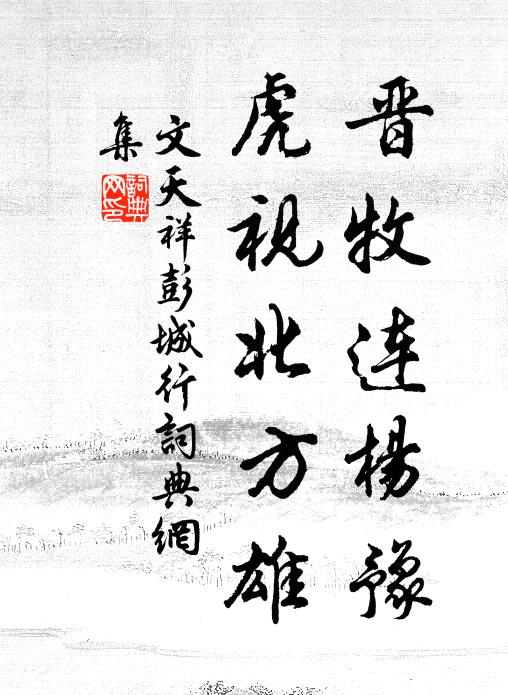 晋牧连楊豫
虎视北方雄
文天祥彭城行詞典網
集
詞典网印